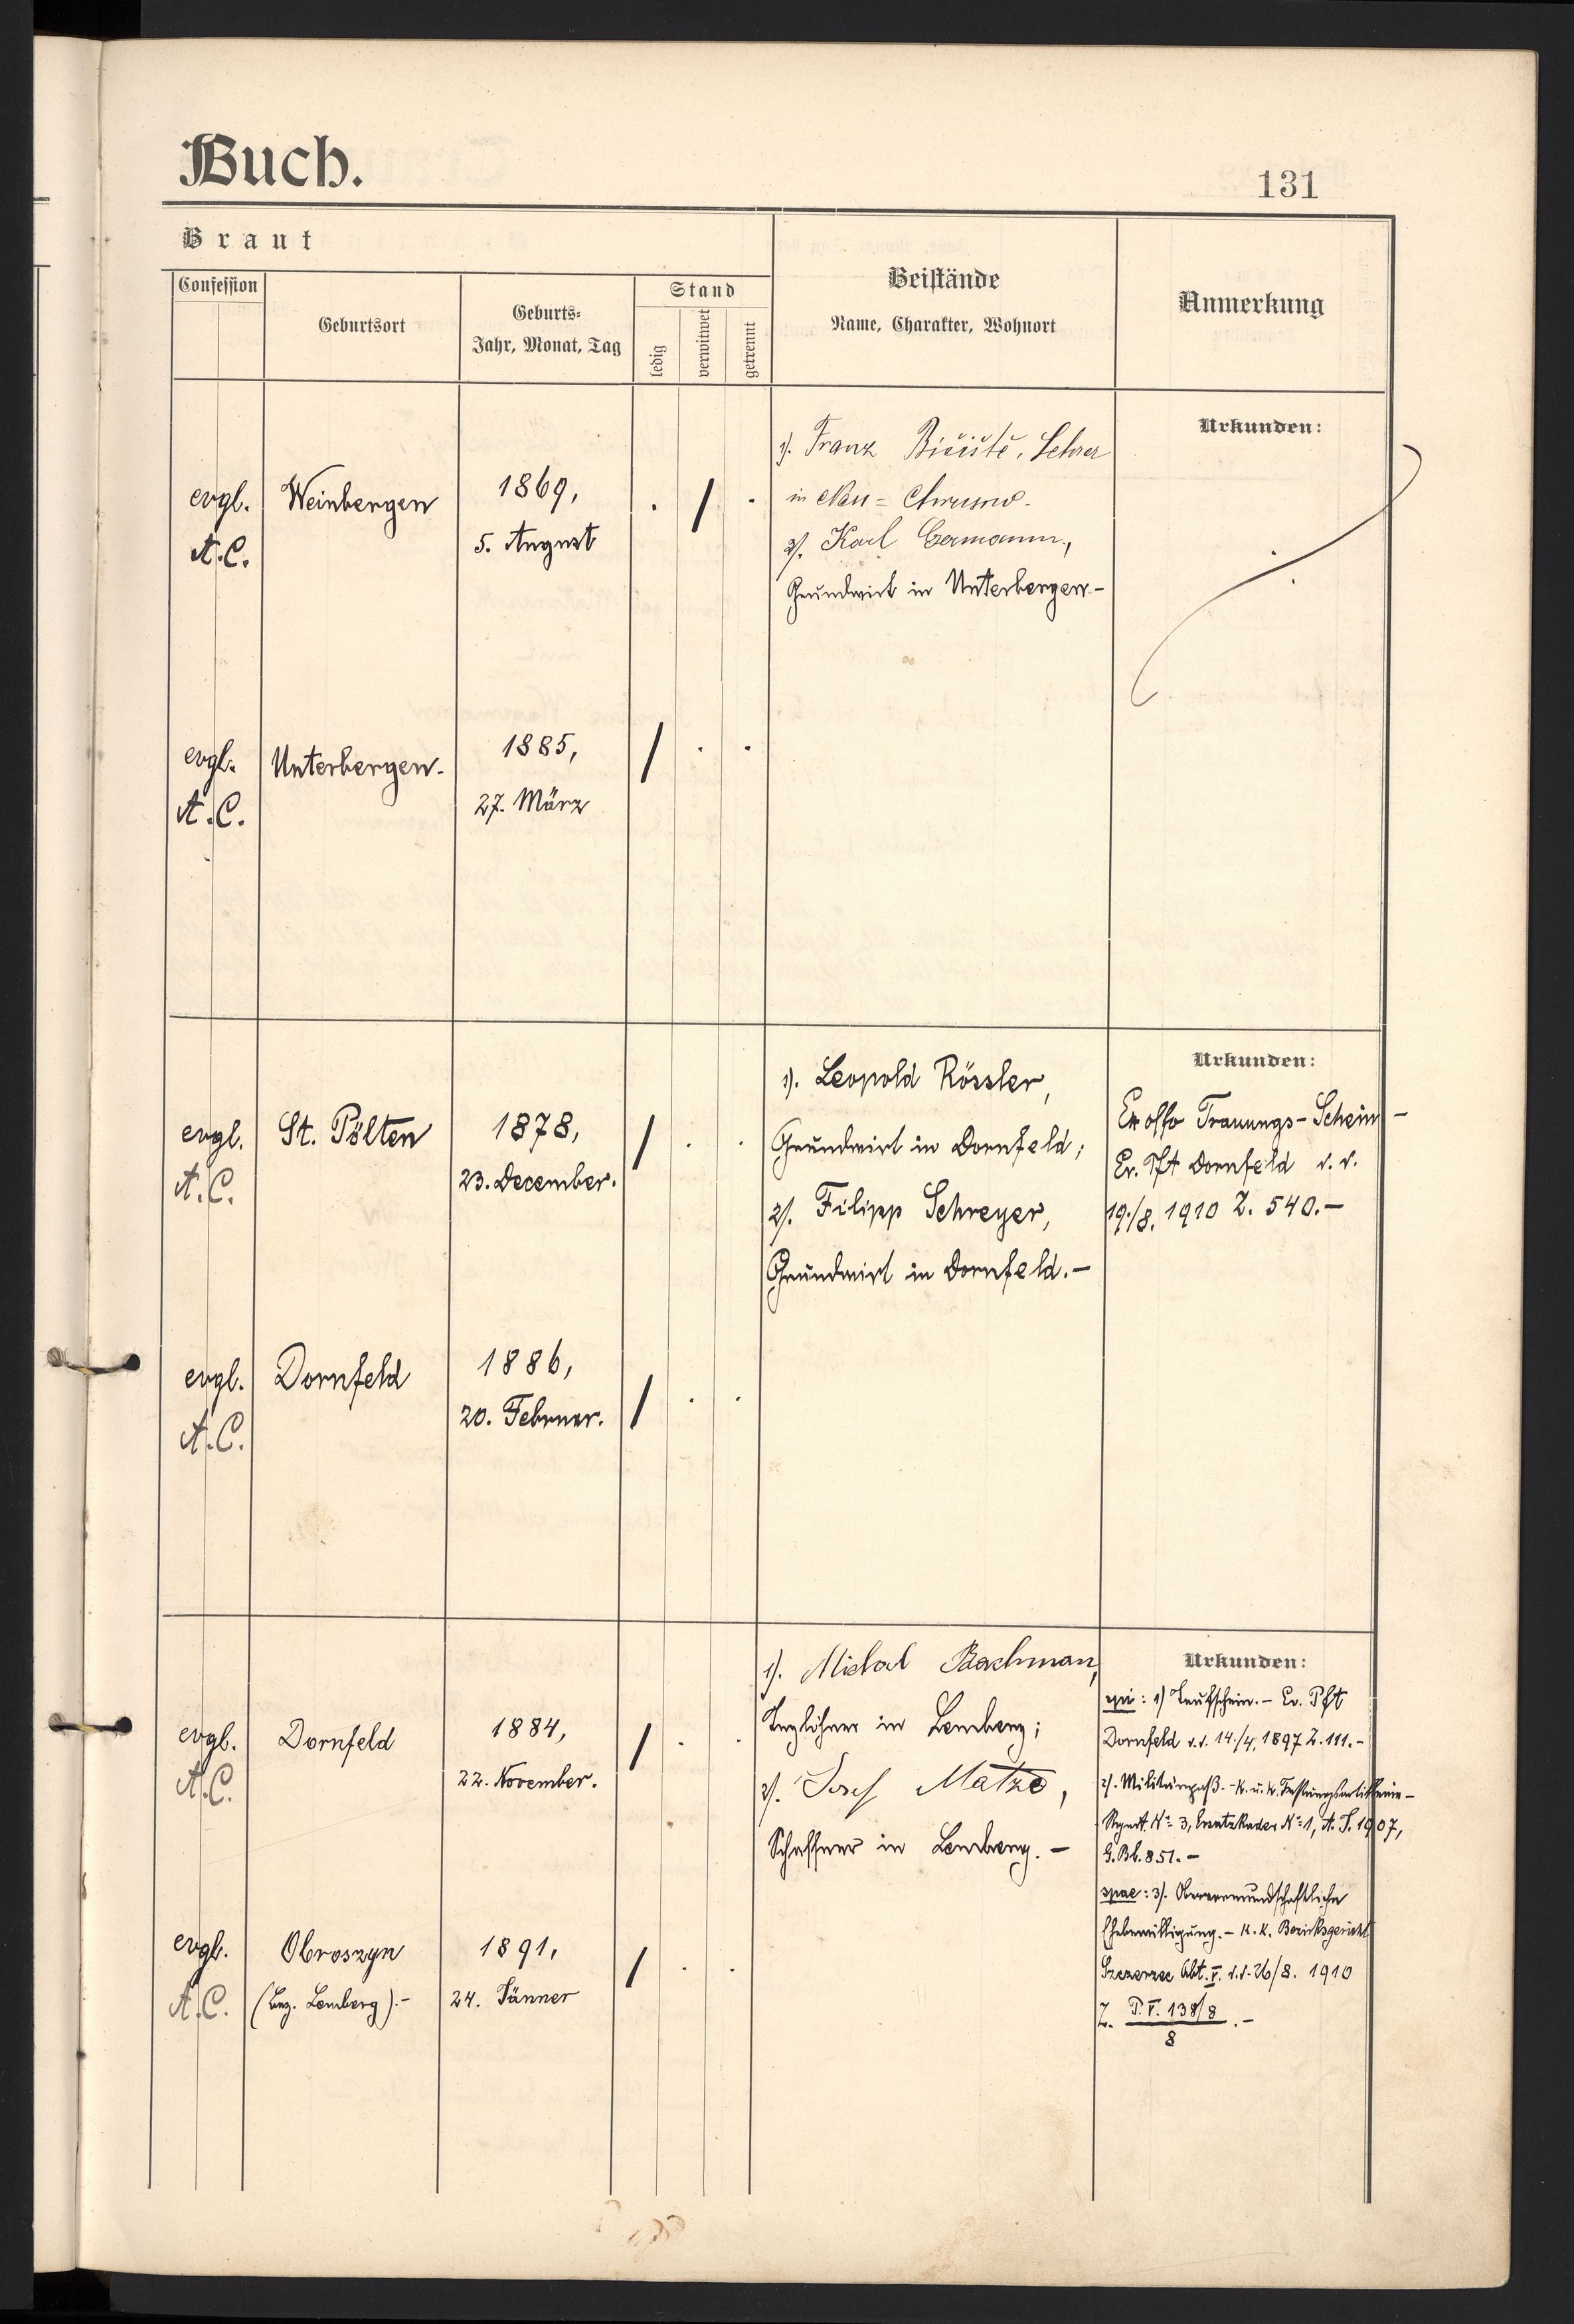 Buch.
131
Braut
Confession
Geburtsort
Geburts-
Jahr, Monat, Tag
Stand
ledig
verwitwet
getrennt
Beistände
Name, Charakter, Wohnort
Anmerkung
evgl.
A.C.
Weinbergen
1869,
5. August
1). Franz Lehrer
in Neu =
2). Karl Germann,
Grundwirt in Unterbergen -
Urkunden:
evgl.
A.C.
Unterbergen.
1885,
27. März
evgl.
A.C.
St. Pölten
1878,
23. December.
1). Leopold Rössler,
Grundwirt in Dornfeld;
2). Filipp Schreyer,
Grundwirt in Dornfeld. -
Urkunden:
Ex offo Trauungs-Schein -
Ev. Pft Dornfeld v. v.
19./8. 1910 Z. 540. -
evgl.
A.C.
Dornfeld
1886,
20. Februar.
evgl.
A.C.
Dornfeld
1884,
22. November.
1). Michal Bachman,
Taglöhner in Lemberg;
2). Josef Matze,
Schaffner in Lemberg. -
Urkunden:
spi: 1) Taufschein. - Ev. Pft
Dornfeld v. v. 14./4. 1897 Z. 111. -
2). Militärpaß. - K. u. K. Festungsartillerie -
Regmt. Nº 3, Ersatzkader Nº 1, A. J. 1907,
G. Bl. 851. -
spae: 3). Obervormundschaftliche
Ehebewilligung. - K. K. Bezirksgericht
Szczerzec Abt. V. v. v. 26/8. 1910
Z. P. V. 138/8
8 . -
evgl.
A.C.
Obroszyn
(Bez. Lemberg). -
1891,
24. Jänner